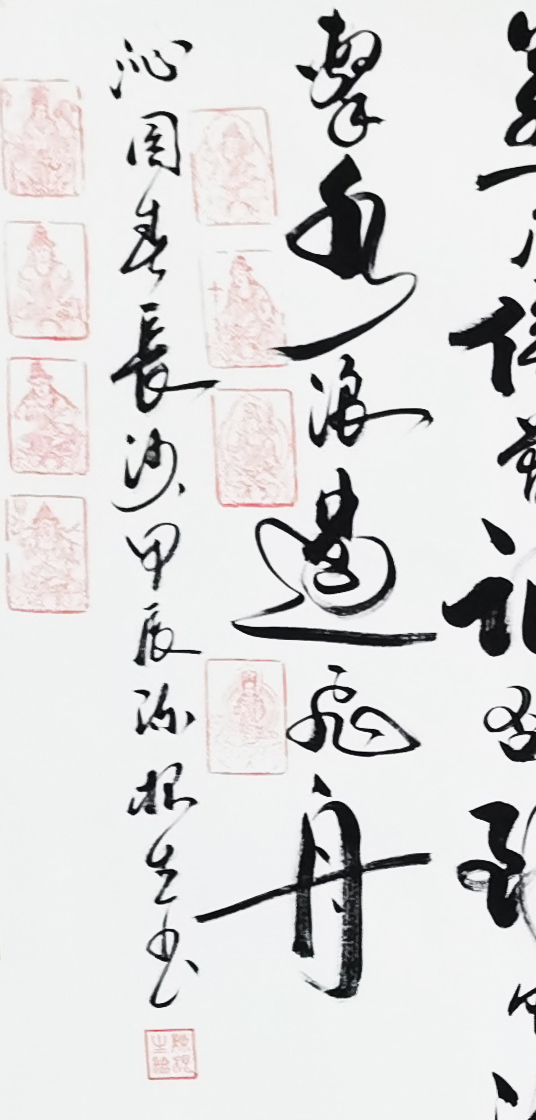 侯曾記否到中
擊水浪遏飛舟
沁園春長沙甲辰根生书